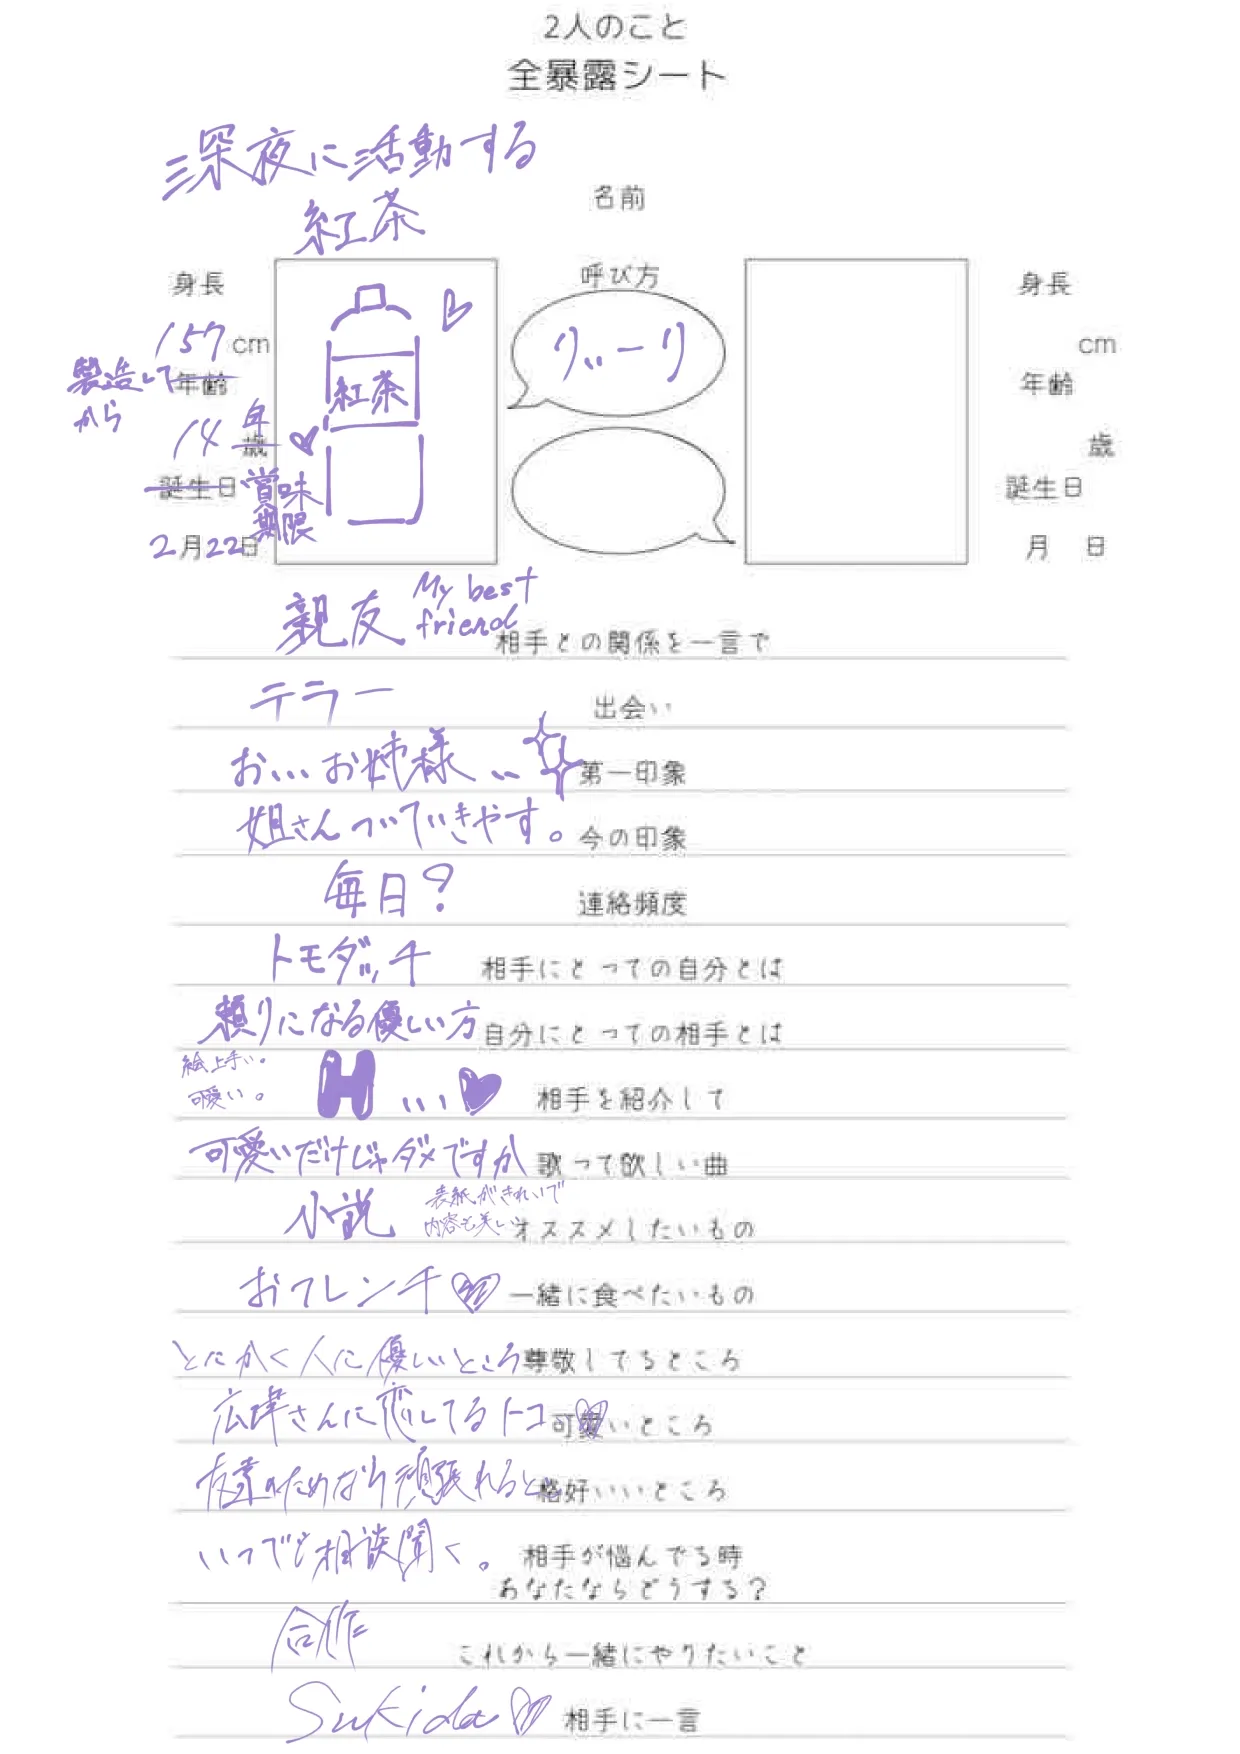 2人のこと
全暴露シート
深夜に活動する
紅茶
名前
身長
157cm
製造してから
年齢
14年
歳
誕生日 賞味期限
2月22日
紅茶
呼び方
りぃーり
身長
cm
年齢
歳
誕生日
月 日
親友 My best friend 相手との関係を一言で
テラー 出会い
お...お姉様... 第一印象
姐さんついていきやす。 今の印象
毎日? 連絡頻度
トモダッチ 相手にとっての自分とは
頼りになる優しい方 自分にとっての相手とは
絵上手い。
可愛い。
H... 相手を紹介して
可愛いだけじゃダメですか 歌って欲しい曲
小説 表紙がきれいで
内容も美しい オススメしたいもの
おフレンチ 一緒に食べたいもの
とにかく人に優しいところ 尊敬してるところ
広津さんに恋してるトコ 可愛いところ
友達のためなら頑張れるとこ 格好いいところ
いつでも相談聞く。 相手が悩んでる時
あなたならどうする?
合作 これから一緒にやりたいこと
Sukida 相手に一言